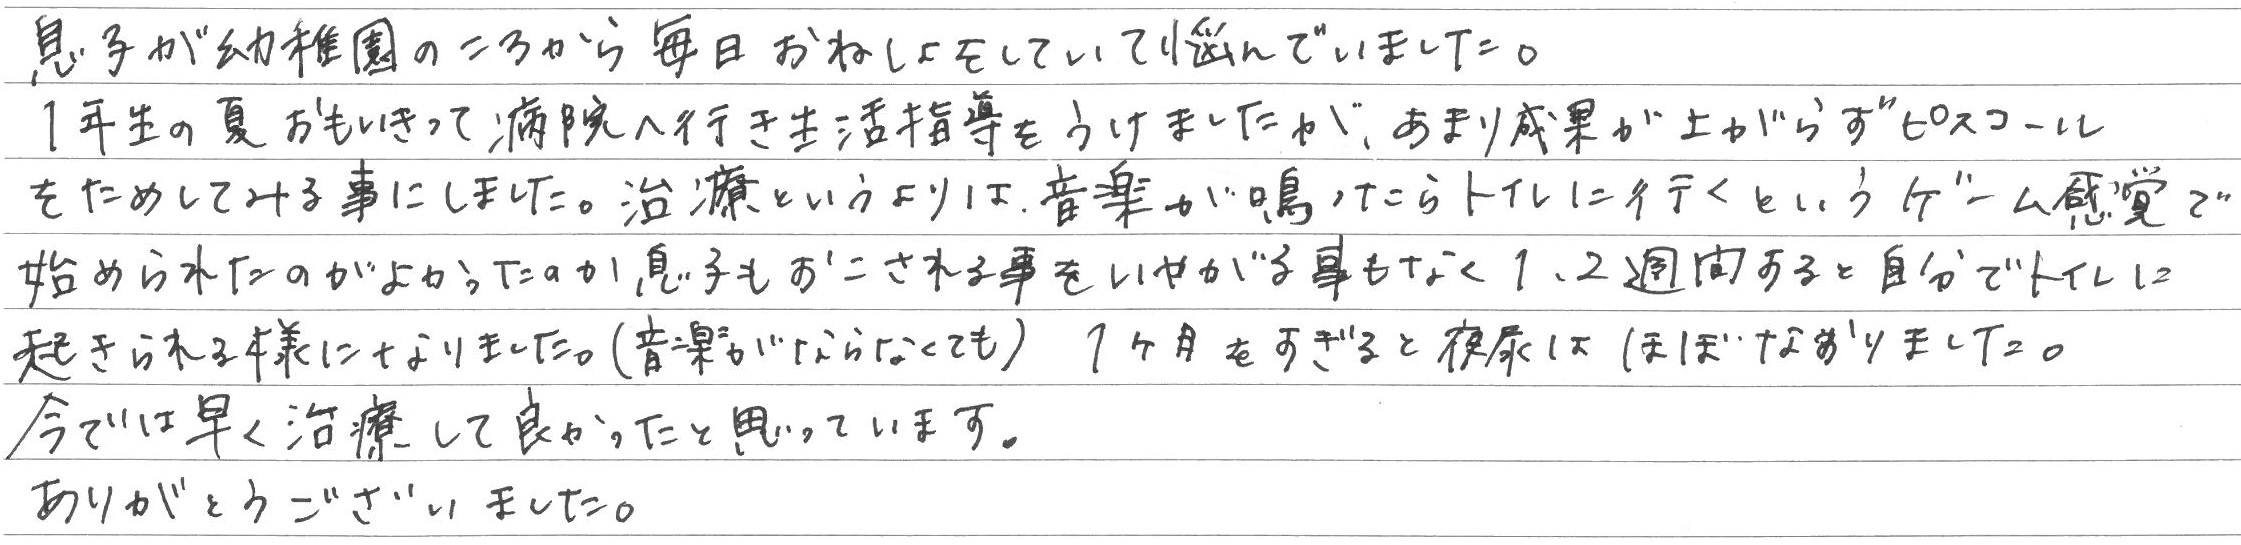 息子が幼稚園のころから毎日おねしょをしていて悩んでいました。
1年生の夏おもいきって病院へ行き生活指導をうけましたが、あまり成果が上がらずピスコール
をためしてみる事にしました。治療というよりは、音楽が鳴ったらトイレに行くというゲーム感覚で
始められたのがよかったのか息子もおこされる事をいやがる事もなく1、2週間あると自分でトイレに
起きられる様になりました。(音楽がならなくても) 1ケ月をすぎると夜尿はほぼなおりました。
今では早く治療して良かったと思っています。
ありがとうございました。